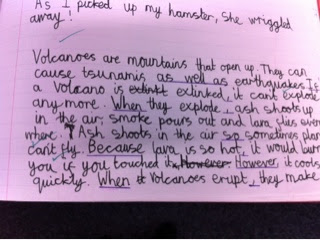 As I picked up my hamster, she wriggled
away!
Volcanoes are mountains that open up. They can
cause tsunamis as well as earthquakes. Is
a volcano is extinkt extinked, it cant explode
any more. When they explode, ash shoots up
in the air, smoke pours out and lava flies every
where. Ash shoots in the air so sometimes plan
can't fly. Because lava is so hot, it would burn
you if you touched it. However However, it cools
quickly. When it volcanoes erupt, they make